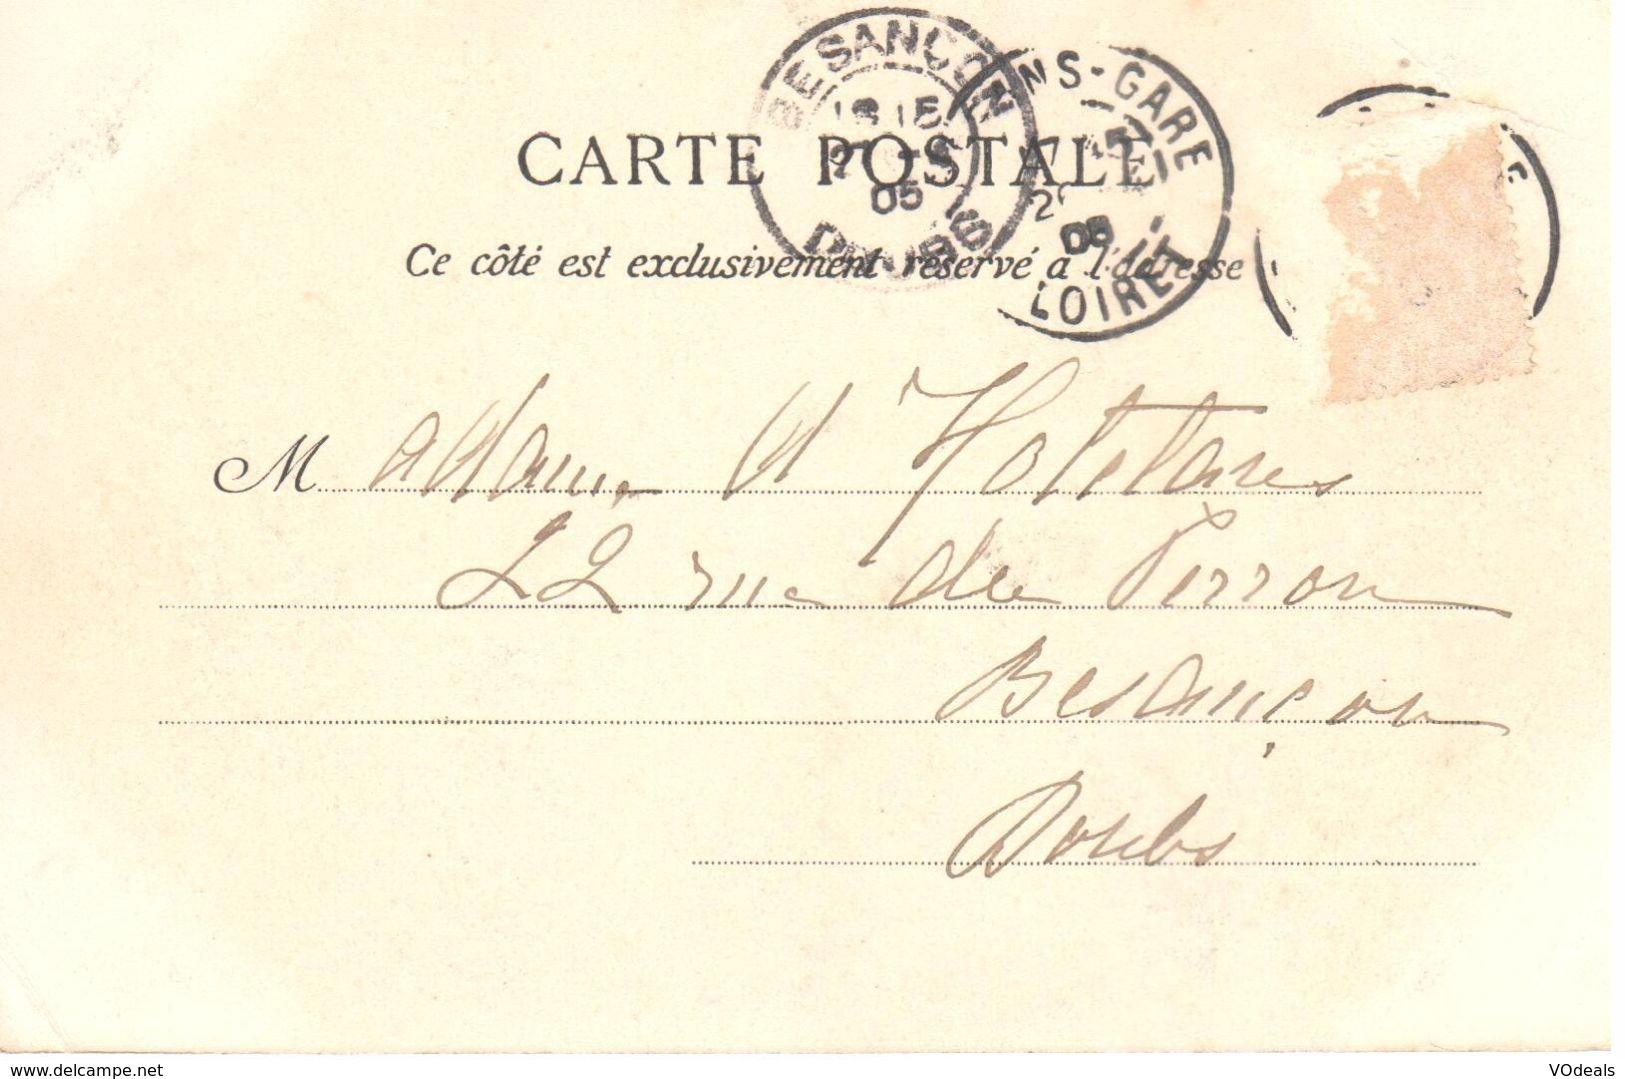 BESANÇON
05
DOUBS
NS-GARE
LOIRET
CARTE POSTALE
Ce côté est exclusivement réservé à l'adresse
Madame d'
22 rue du Perron
Besançon
Doubs
delcampe.net
VOdeals